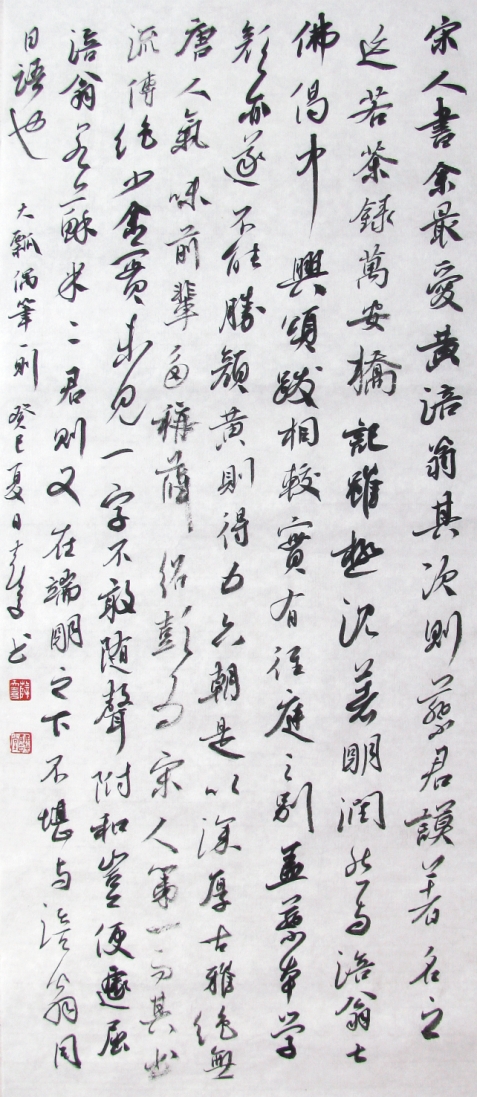 宋人書余最愛黃涪翁其次則蔡君謨著名之
迹若茶錄萬安橋記雖極沉著明潤然与涪翁七
佛偈中興頌跋相較實有徑庭之別蓋蔡本学
顏亦遂不能勝顏黃則得力六朝是以深厚古雅絕無
唐人氣味前輩多稱薛紹彭为宋人第一而其书
流傳絕少余實未見一字不敢随聲附和豈便遽屈
涪翁若蘇米二君則又在端明之下不堪与涪翁同
日語也
大瓢偶筆一則 癸巳夏日 书